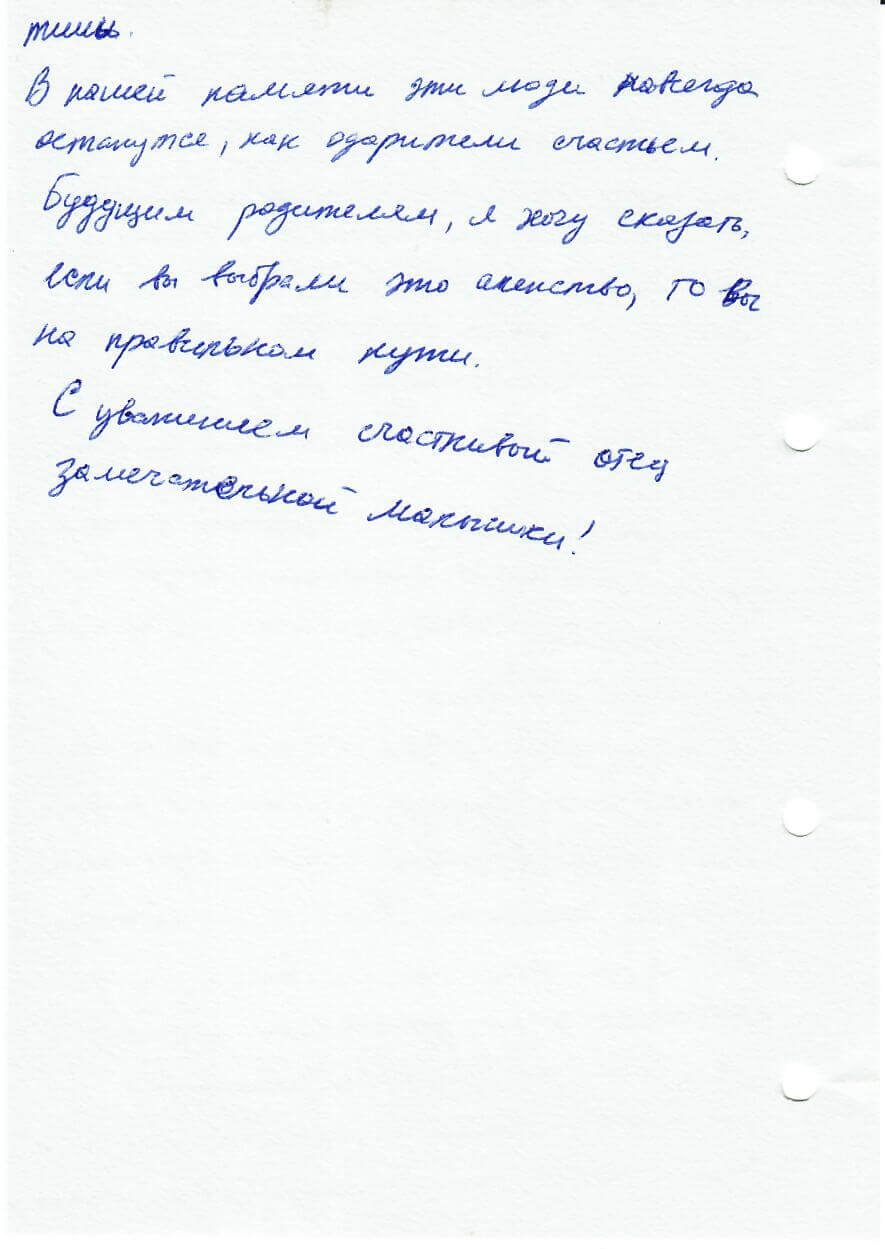 В нашей памяти эти люди навсегда
останутся, как одарители счастьем.
Будущим родителям, я хочу сказать,
если вы выбрали это агенство, то вы
на правильном пути.
С уважением счастливый отец
замечательной малышки!